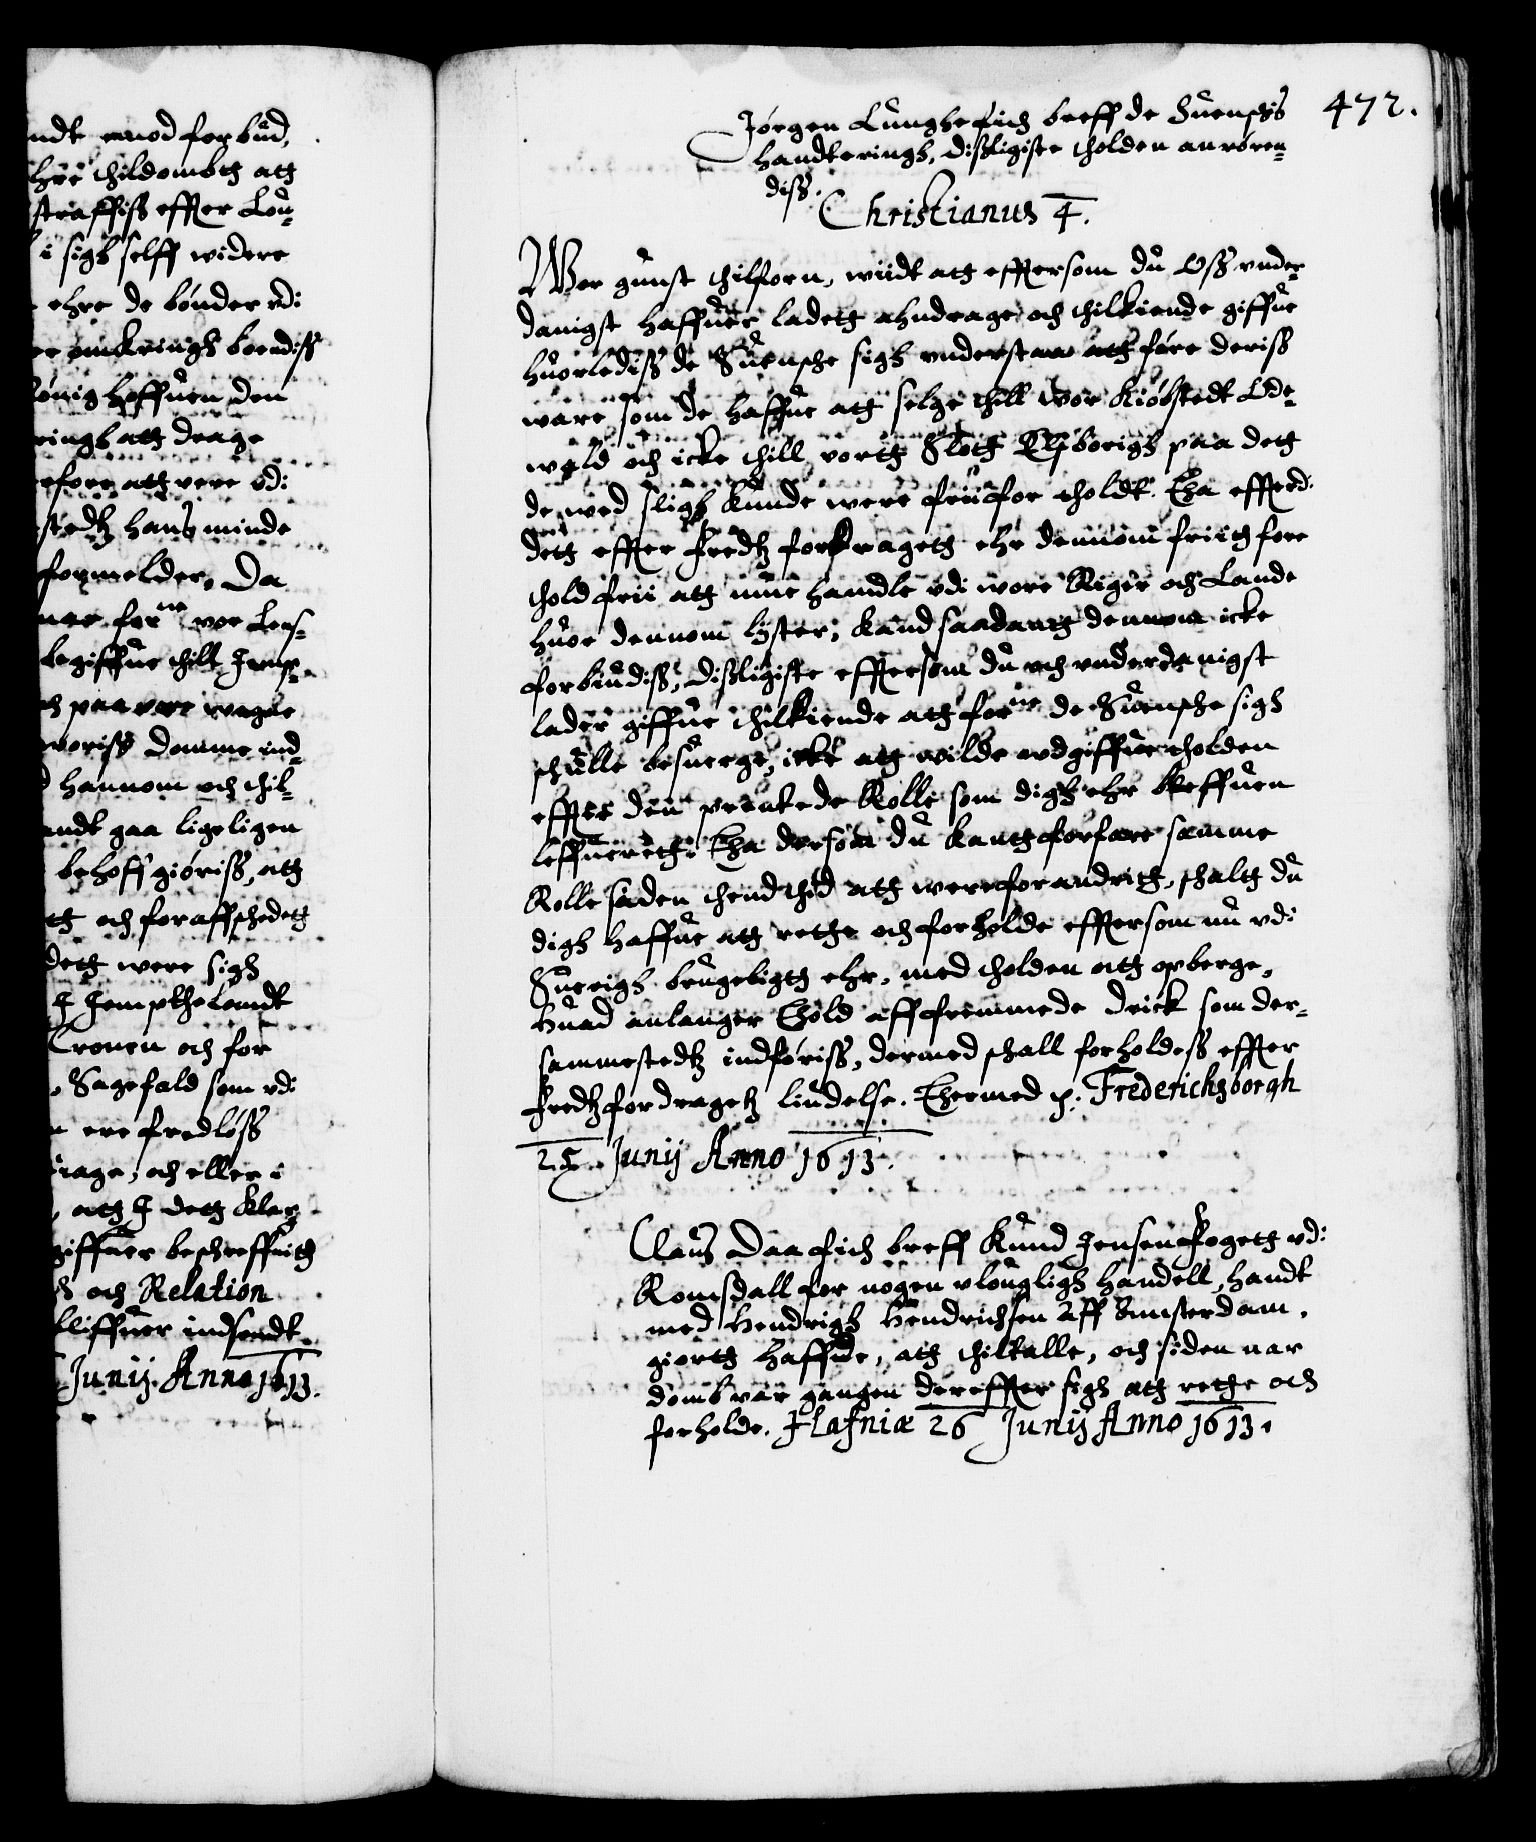 ndt emod forbud,
hre thildombtg att
straffiss effter Lou-
i sigh selff widere
ehre de bönder vdi
omkringh boendiss
kónig hoffuen den
ringh att drage
refore att vere vdi
stedtz hans minde
formelder, Da
for^ne vor Lens-
begiffue thill Jemp-
paa vore wegne
woriss domme ind-
hannom och thil-
andt gaa ligeligen
behoff giöriss, att
och foraffschedett
dett were sigh
I Jempthelandt
Cronen och for
Sagefald som vdi
ere fredlöss
, och eller i
, att I dett klar
giffuer beschreffuith
och Relation
indsendt.
Junij Anno 1613.
472.
Jörgen Lunghe fich breff de Suenschis
handteringh, disligiste tholden anrören-
diss.
Christianus 4.
Wor gunst thilforn, wiidt att effttersom du Oss vnder-
danigst haffuer ladett ahndrage och thilkiende giffue
huorlediss de Suensche sigh vnderstaa att före deriss
ware som de haffue att selge thill wor Kiöbstedt Ode-
wold och icke thill vortt Slott Elssborigh paa dett
de wed sligh kunde were frii for tholdt. Tha effterd.
dett effter fredtz fordragett ehr dennom friitt fore
thold frii att mue handle vdi wore Riger och Lande
huor dennom lyster, kand saadantt dennom icke
forbiudiss, Disligiste effttersom du och vnderdanigst
lader giffue thilkiende att for^ne de Suensche sigh
schulle besuerge, icke att wilde vdgiffue tholden
effter den prentede Rolle som digh ehr bleffuen
leffuerett. Tha dersom du kantt forfare samme
Rolle siden thend thid att were forandritt, schaltt du
digh haffue att rette och forholde effttersom nu vdi
Suerigh brugeligtt ehr, med tholden att opberge,
Huad anlanger Thold aff fremmede drick som der-
sammestedtz indföriss, dermed schall forholdess effter
fredtzfordragetz liudelse. Thermed p. Frederichsborgh
25 Junij Anno 1613.
Claus Daa fich breff Knud Jensen fogett vdi
Romsdall for nogen vlouglligh handell, handt
med Hendrigh Hendrichsen aff Amsterdam,
giortt haffue, att thiltalle, och siden nar
domb var gangen dereffter sigh att rette och
forholde. Hafniæ 26 Junij Anno 1613.